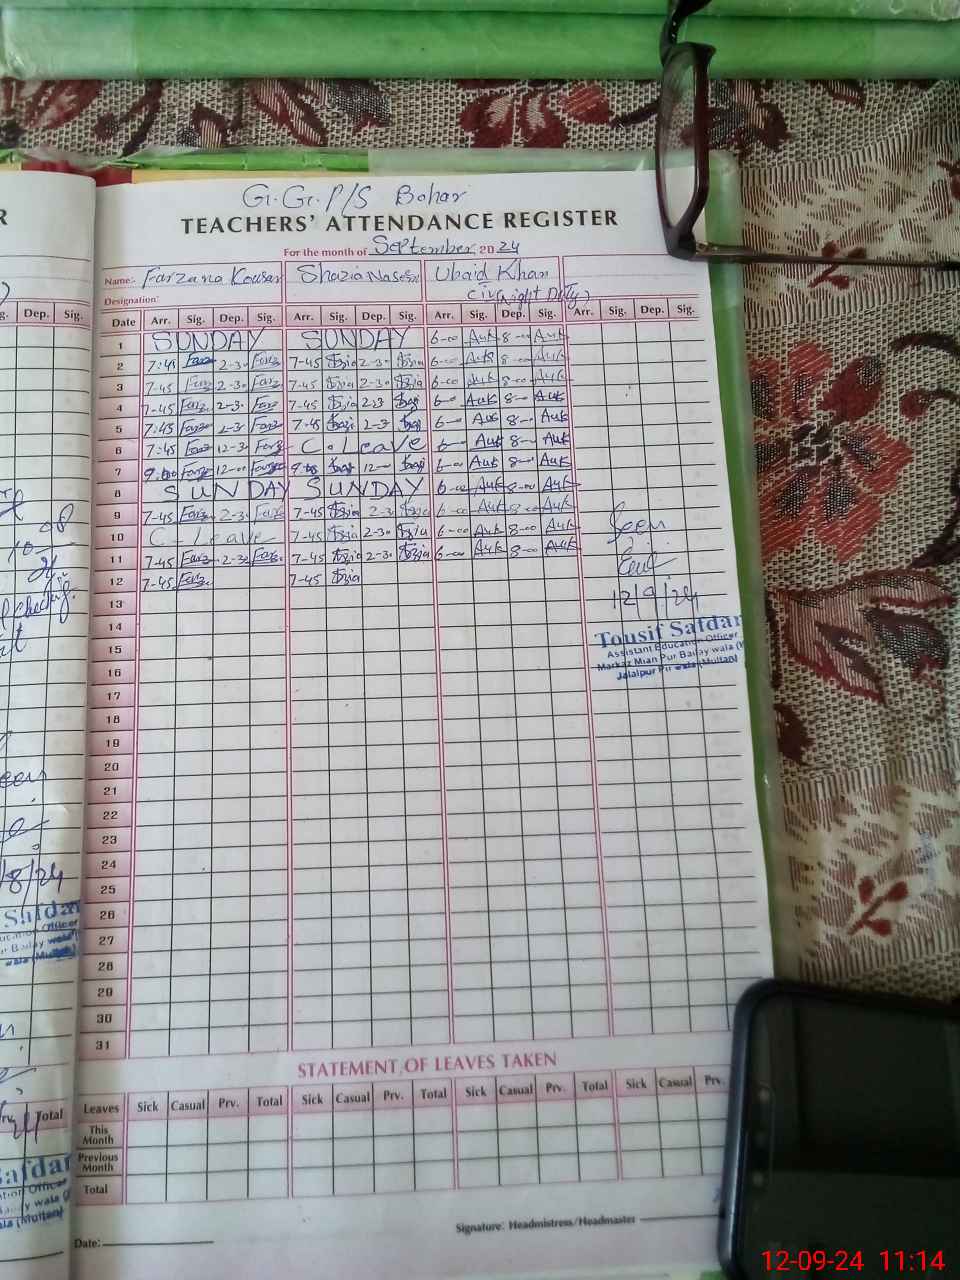 G.G.P/S Bohar
TEACHERS' ATTENDANCE REGISTER
For the month of September 2024
Name: Farzana Kousar Shazia Naseen Ubaid Khan
Designation: (Night Duty)
Date Arr. Sig. Dep. Sig. Arr. Sig. Dep. Sig. Arr. Sig. Dep. Sig. Arr. Sig. Dep. Sig.
1 SUNDAY SUNDAY 6-00 8-00
2 7:45 Farz 2-30 Farz 7-45 Szia 2-30 Szia 6-00 8-00
3 7-45 Farz 2-30 Farz 7-45 Szia 2-30 Szia 6-00 8-00
4 7-45 Farz 2-30 Farz 7-45 Szia 6-00 8-00
5 7:45 Farz 2-30 Farz 7-45 6-00 8-00
6 7:45 Farz 12-30 Farz C. Leave 6-00 8-00
7 Farz 12-00 12-00 6-00 8-00
8 SUNDAY SUNDAY 6-00 8-00
9 7-45 Farz 2-30 Farz 7-45 Szia 2-30 Szia 6-00 8-00
10 C-Leave 7-45 Szia 2-30 Szia 6-00 8-00
11 7-45 Farz 2-30 Farz 7-45 Szia 2-30 Szia 6-00 8-00
12 7-45 Farz 7-45 Szia
Seen
12/9/24
13
14
Tousif Safdar
Assistant Education Officer
15
Markaz Mian Pur Balay wala
16
Jalalpur Pir wala (Multan)
17
18
19
20
21
22
23
24
25
26
27
28
29
30
31
STATEMENT OF LEAVES TAKEN
Leaves Sick Casual Prv. Total Sick Casual Prv. Total Sick Casual Prv. Total Sick Casual Prv.
This Month
Previous Month
Total
Signature: Headmistress/Headmaster
Date:
R
Dep. Sig.
8/24
Total
12-09-24 11:14